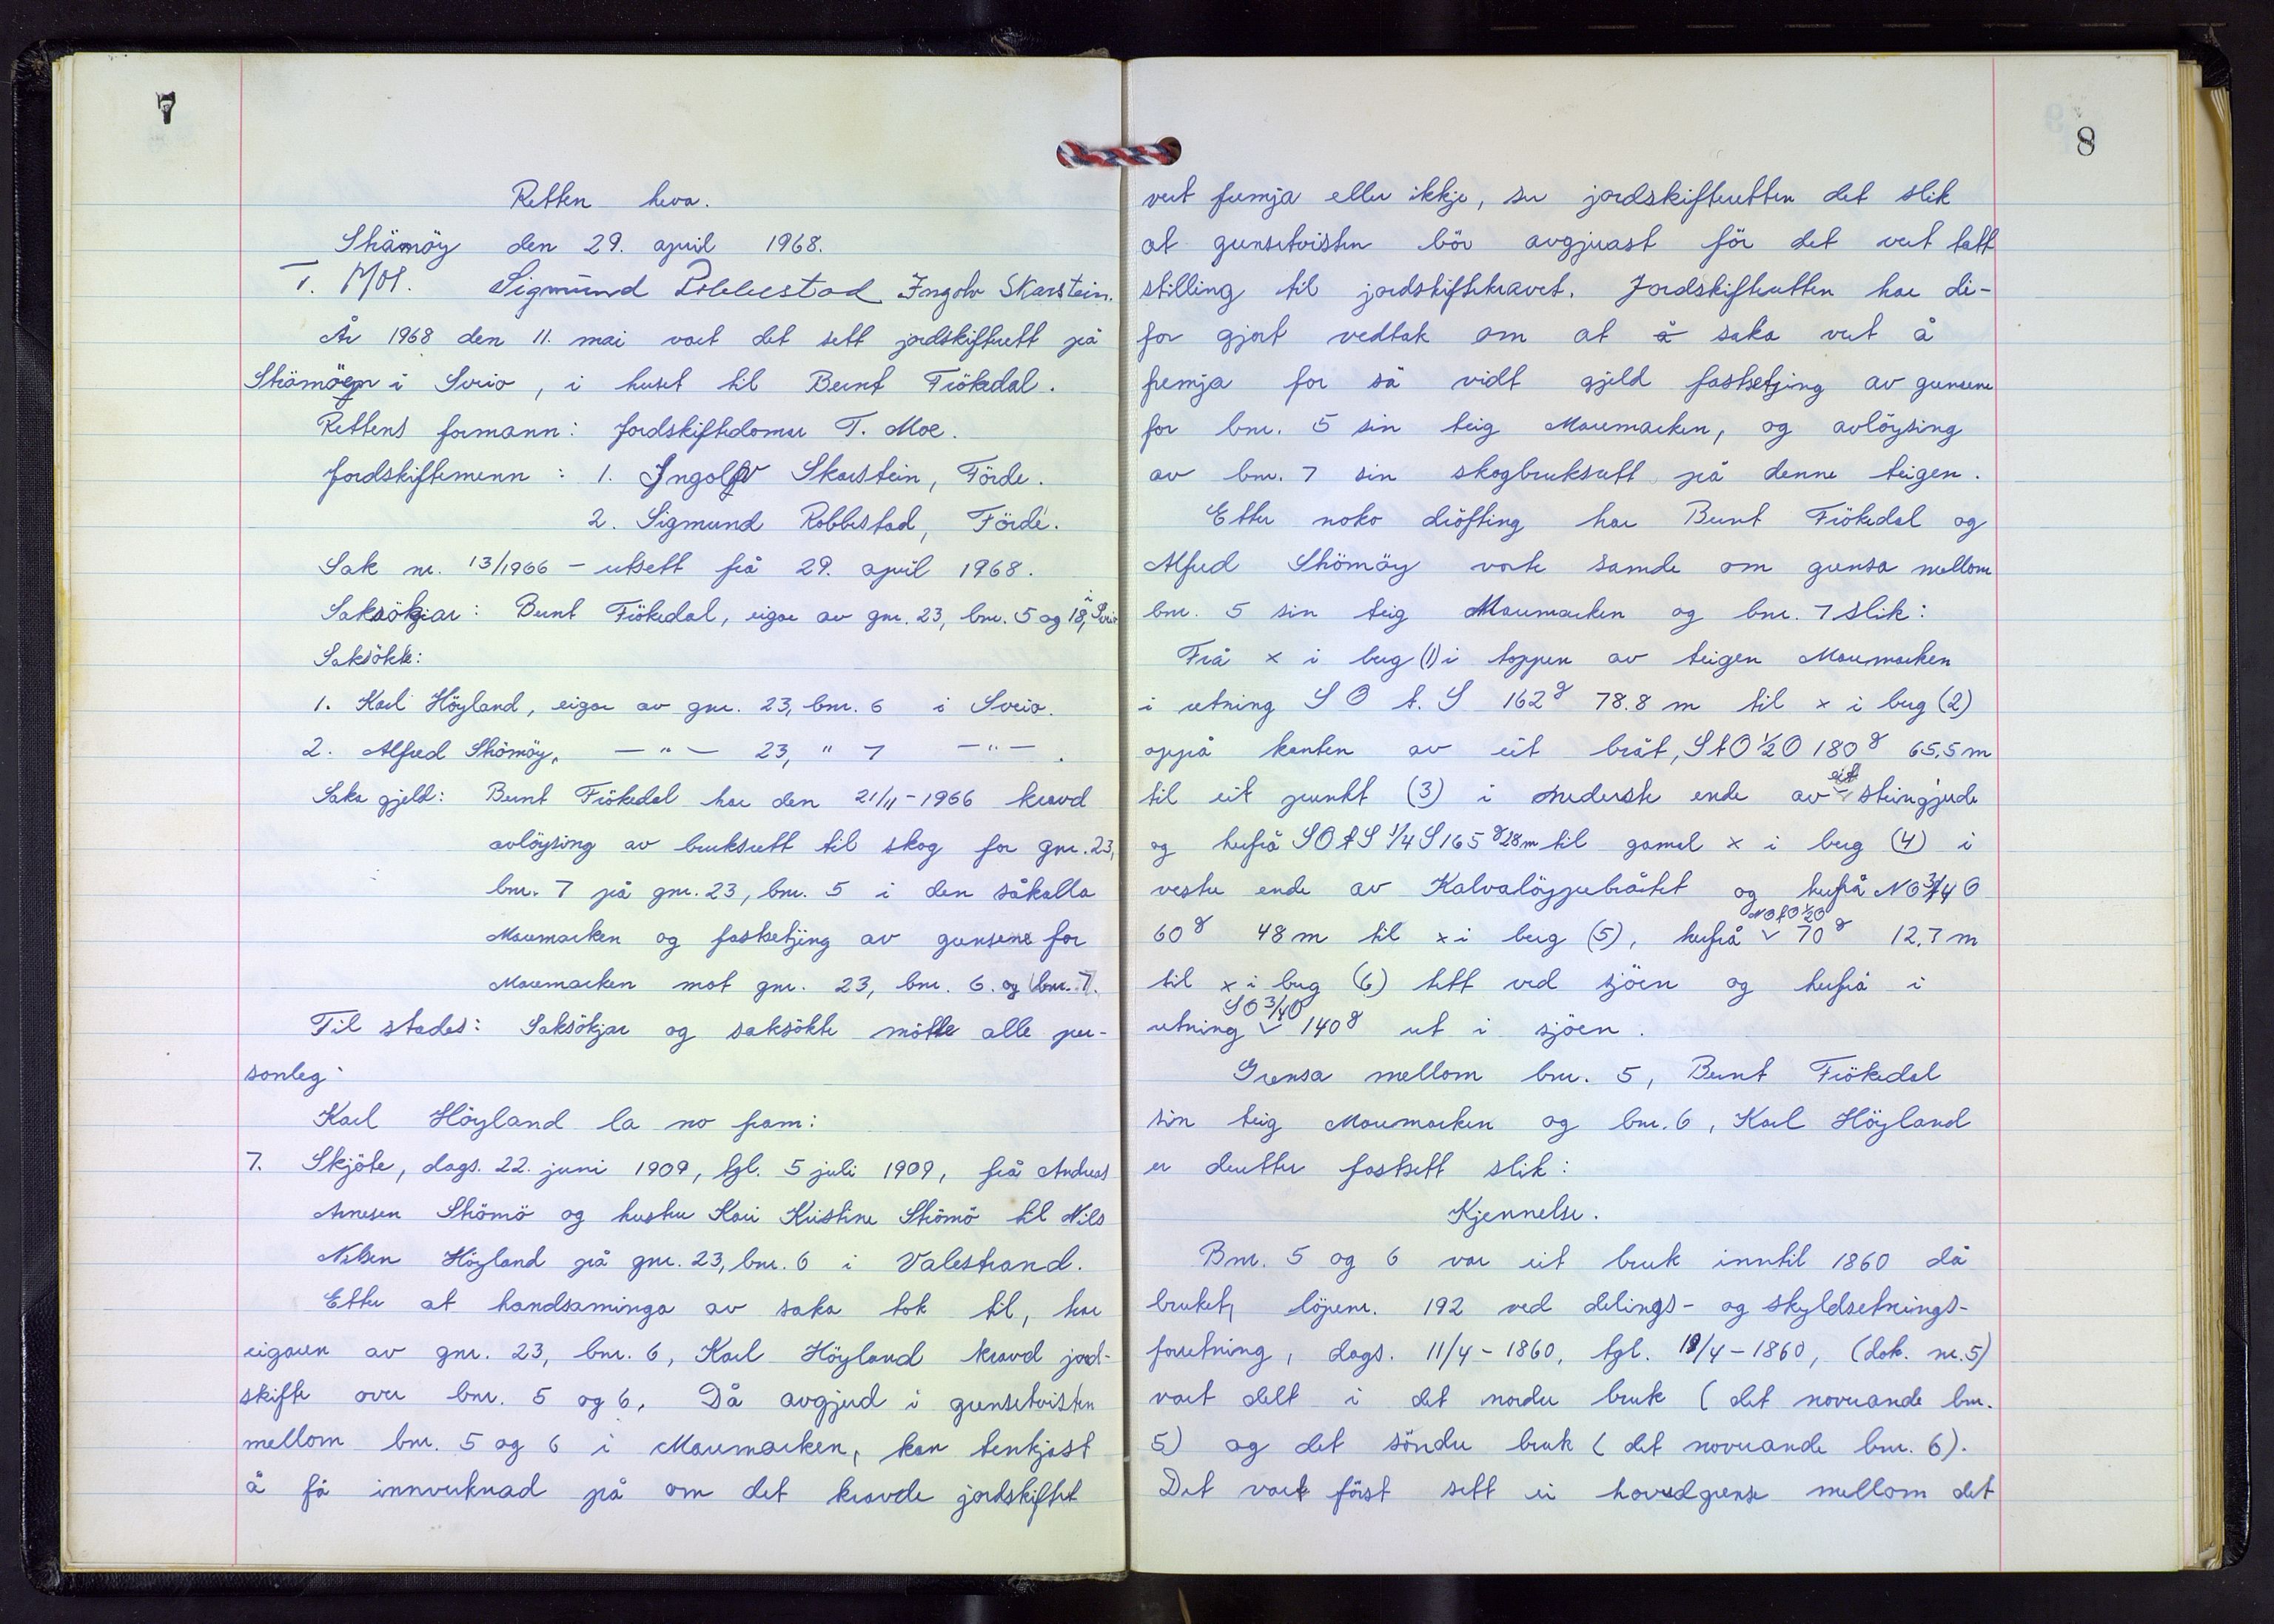 7
Retten heva.
Strämöy den 29. april 1968.
T. Moe. Sigmund Robbestad Ingolv Skarstein.
År 1968 den 11. mai vart det sett jordskifterett på
Strömöyn i Sveio, i huset til Bernt Frökedal.
Rettens formann: Jordskiftedomar T. Moe.
Jordskiftemenn: 1. Ingolv Skarstein, Förde.
2. Sigmund Robbestad, Förde.
Sak nr. 13/1966 - utsett frå 29. april 1968.
Saksökjar: Bernt Frökedal, eigar av gnr. 23, bnr. 5 og 18, i Sveio
Saksökte:
1. Karl Höyland, eigar av gnr. 23, bnr. 6 i Sveio.
2. Alfred Strömöy, — " — 23, " 7 — " — .
Saka gjeld: Bernt Frökedal har den 21/11-1966 kravd
avlöysing av bruksrett til skog for gnr. 23,
bnr. 7 på gnr. 23, bnr. 5 i den såkalla
Maremarken og fastsetjing av grensene for
Maremarken mot gnr. 23, bnr. 6. og bnr. 7.
Til stades: Saksökjar og saksökte mötte alle per-
sonleg.
Karl Höyland la no fram:
7. Skjöte, dags. 22. juni 1909, tgl. 5 juli 1909, frå Andreas
Arnesen Strömö og hustru Kari Kristine Strömö til Nils
Nilsen Höyland på gnr. 23, bnr. 6 i Valestrand.
Etter at handsaminga av saka tok til, har
eigaren av gnr. 23, bnr. 6, Karl Höyland kravd jord-
skifte over bnr. 5 og 6. Då avgjerd i grensetvisten
mellom bnr. 5 og 6 i Maremarken, kan tenkjast
å få innverknad på om det kravde jordskiftet
8
vert fremja eller ikkje, ser jordskifteretten det slik
at grensetvisten bör avgjerast för det vert tatt
stilling til jordskiftekravet. Jordskifteretten har di-
for gjort vedtak om at å saka vert å
fremja for så vidt gjeld fastsetjing av grensene
for bnr. 5 sin teig Maremarken, og avlöysing
av bnr. 7 sin skogbruksrett på denne teigen.
Etter noko dröfting har Bernt Frökedal og
Alfred Strömöy vorte samde om grensa mellom
bnr. 5 sin teig Maremarken og bnr. 7 slik:
Frå x i berg (1) i toppen av teigen Maremarken
i retning S O t. S 162g 78.8 m til x i berg (2)
oppå kanten av eit bråt, StO ½ O 180g 65,5 m
til eit punkt (3) i nederste ende av eit steingjerde
og herfrå SOtS 1/4 S 165g 28m til gamal x i berg (4) i
vestre ende av Kalvalöypebråtet og herfrå NO 3/4 O
60g 48 m til x i berg (5), herfrå NOtO ½O 70g 12,7 m
til x i berg (6) tett ved sjöen og herfrå i
retning SO 3/4 O 140g ut i sjöen.
Grensa mellom bnr. 5, Bernt Frökedal
sin teig Maremarken og bnr. 6, Karl Höyland
er deretter fastsett slik:
Kjennelse.
Bnr. 5 og 6 var eit bruk inntil 1860 då
bruket, löpenr. 192 ved delings- og skyldsetnings-
forretning, dags. 11/4-1860, tgl. 18/4-1860, (dok. nr. 5)
vart delt i det nordre bruk (det noverande bnr.
5) og det söndre bruk (det noverande bnr. 6).
Det vart först sett ei hovudgrense mellom det